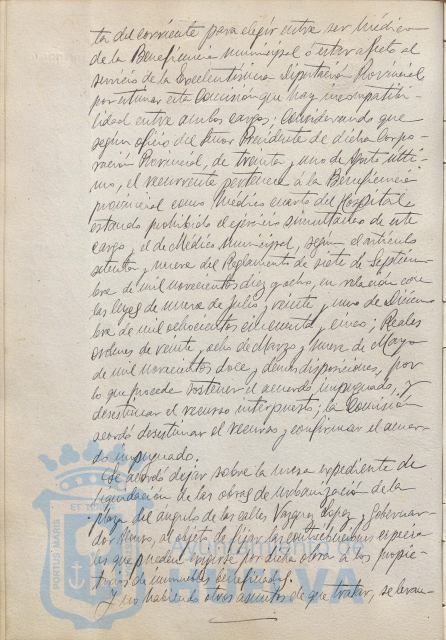 ta del corriente para elegir entre ser Médico
de la Beneficencia municipal ó estar afecto al
servicio de la Excelentísima Diputación Provincial
por estimar esta Comisión que hay incompatibi-
lidad entre ambos cargos; Considerando que
segun oficio del Señor Presidente de dicha Corpo-
ración Provincial, de treinta y uno de últi-
mo, el recurrente pertenece á la Beneficencia
provincial como Médico cuarto del Hospital
estando prohibido el ejercicio simultáneo de este
cargo y el de Médico Municipal, segun el artículo
setenta y nueve del Reglamento de siete de Septiem-
bre de mil novecientos diez y ocho, en relación con
las leyes de nueve de Julio, veinte y uno de Diciem-
bre de mil ochocientos cincuenta y cinco; Reales
ordenes de veinte y ocho de Marzo y nueve de Mayo
de mil novecientos doce y demas disposiciones, por
lo que procede sostener el acuerdo impugnado, y
desestimar el recurso interpuesto; la Comisión
acordó desestimar el recurso y confirmar el acuer-
do impugnado.
Se acordó dejar sobre la mesa expediente de
liquidación de las obras de urbanización de la
Plaza del ángulo de las calles Vazquez Lopez y Gobernar-
dor Alonso, al objeto de fijar las contribuciones especia-
les que pueden exigirse por dicha obra á los propie-
tarios de inmuebles beneficiados.
Y no habiendo otros asuntos de que tratar, se levan-
PORTUS MARIS
ET
Ayuntamiento de
HUELVA